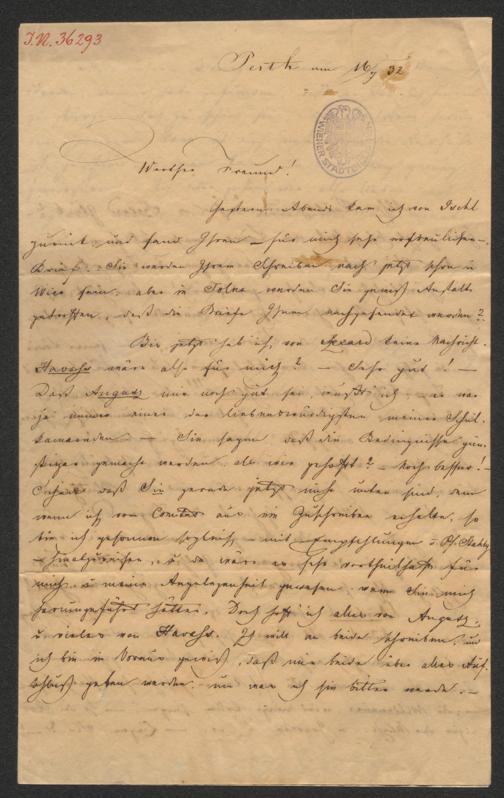 I.N. 36293
Pest am 16/7 32
Werther Freund!
Gestern Abends kam ich von Ischl
zurück und fand Ihren – für mich sehr erfreulichen –
Brief. Sie werden Ihrem Schreiben nach jetzt schon in
Wien sein, aber in werden Sie gewiß Anstalt
getroffen, daß die Briefe Ihnen nachgesendet werden?
Bis jetzt hab ich von keine Nachricht.
wäre also für mich? – Sehr gut! –
Daß August mir noch gut sei, wußt ich – er war
ja immer einer der liebenswürdigsten meiner Schul-
kameraden. – Sie sagen daß die Bedingnisse gün-
stiger gemacht werden als wir gehofft? – Noch besser! –
Schade daß Sie gerade jetzt nicht unten sind, denn
wenn ich vom Comitat aus ein Zuschreiben erhalte, so
bin ich gesonnen sogleich – mit Empfehlungen v.
– hinabzureisen, u da wäre es sehr vortheilhaft für
mich u meine Angelegenheit gewesen, wenn Sie mich
herumgeführt hätten. Doch hoff ich alles von August,
u. vieles von Ich will an beide schreiben, und
ich bin im Voraus gewiß, daß mir beide über alles Auf-
schluß geben werden, um was ich sie bitten werde. –